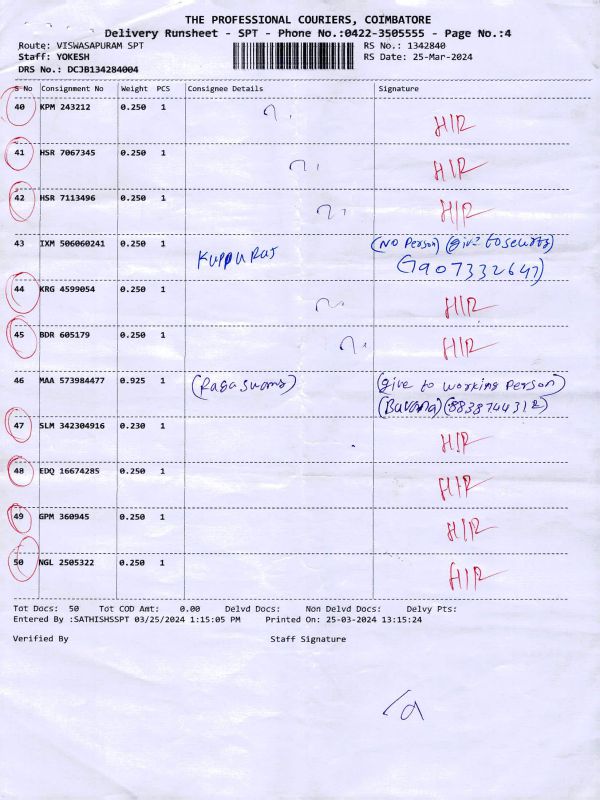 THE PROFESSIONAL COURIERS, COIMBATORE
Delivery Runsheet - SPT - Phone No.:0422-3505555 - Page No.:4
Route: VISWASAPURAM SPT RS No.: 1342840
Staff: YOKESH RS Date: 25-Mar-2024
DRS No.: DCJB134284004
S No Consignment No Weight PCS Consignee Details Signature
40 KPM 243212 0.250 1 H/R
41 HSR 7067345 0.250 1 H/R
42 HSR 7113496 0.250 1 H/R
43 IXM 506060241 0.250 1 KUPPU RAJ (No Person) (give to security)
(7907332647)
44 KRG 4599054 0.250 1 H/R
45 BDR 605179 0.250 1 H/R
46 MAA 573984477 0.925 1 (give to working Person)
(8838744312)
47 SLM 342304916 0.230 1 H/R
48 EDQ 16674285 0.250 1 H/R
49 GPM 360945 0.250 1 H/R
50 NGL 2505322 0.250 1 H/R
Tot Docs: 50 Tot COD Amt: 0.00 Delvd Docs: Non Delvd Docs: Delvy Pts:
Entered By :SATHISHSSPT 03/25/2024 1:15:05 PM Printed On: 25-03-2024 13:15:24
Verified By Staff Signature